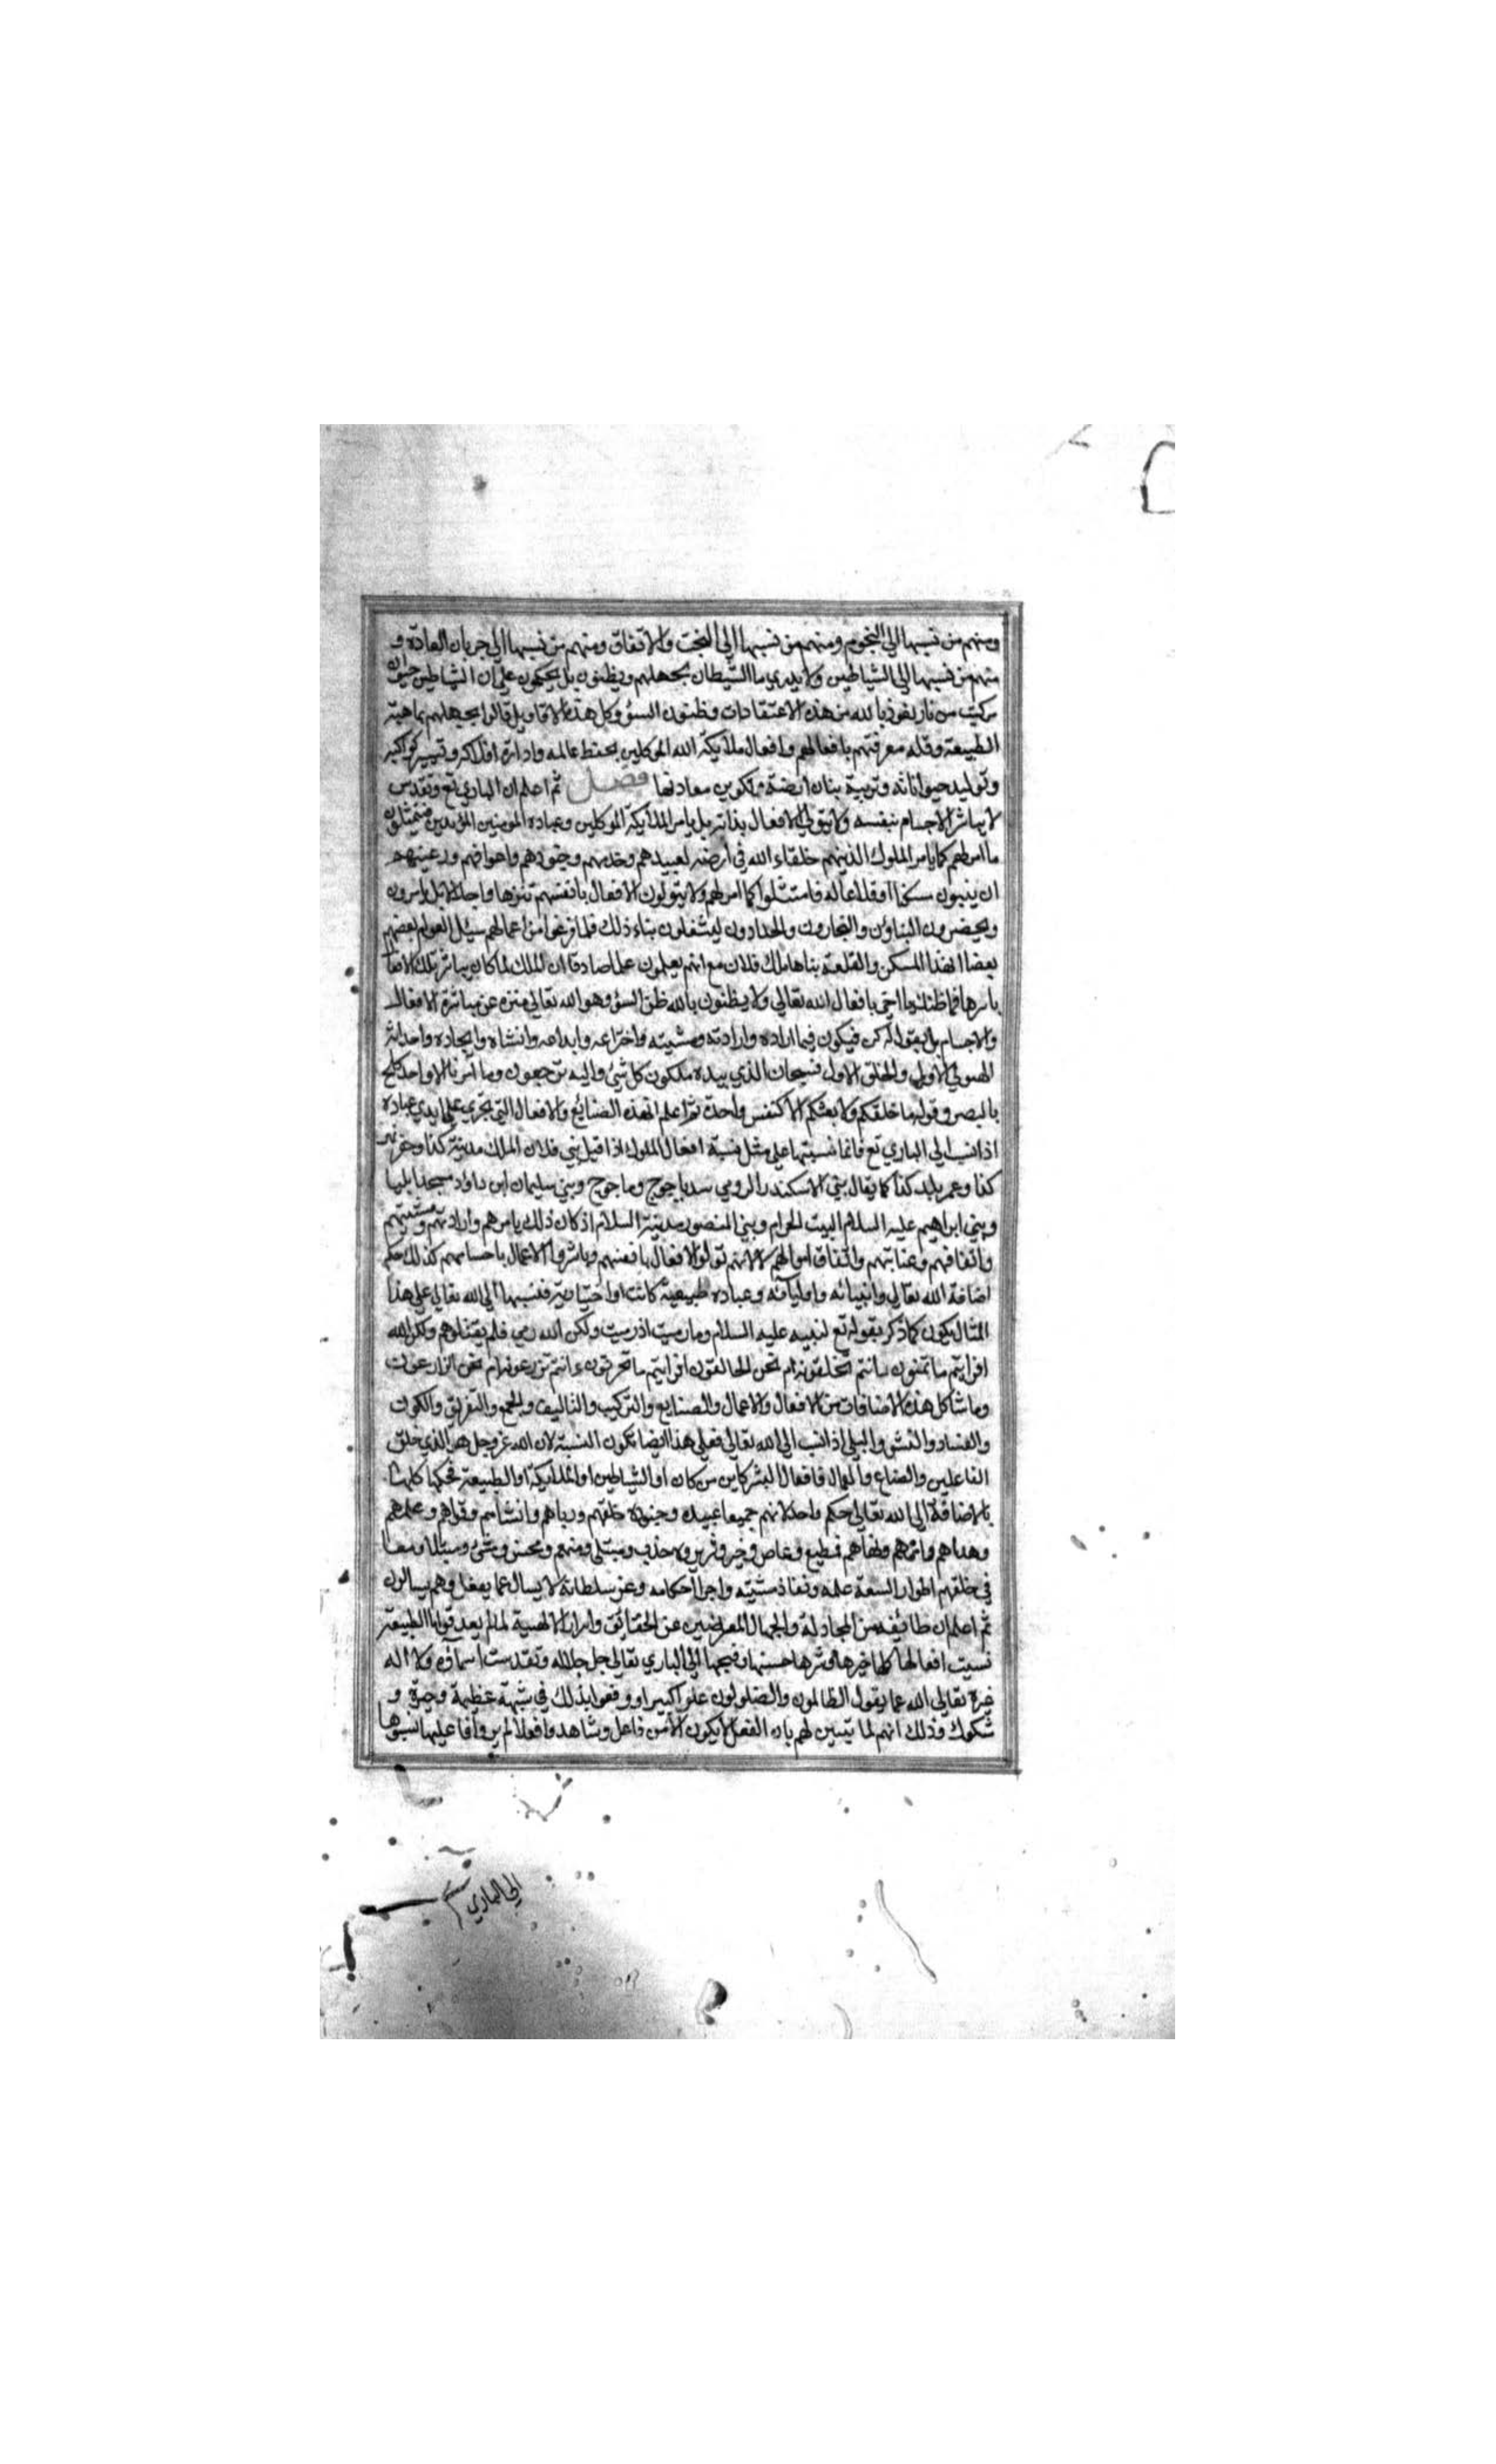 ومنهم من نسبها الي النجوم ومنهم من نسبها الي البخت والاتفاق ومنهم من نسبها الي جريان العادة و
منهم من نسبها الي الشياطين ولا يدري ما الشيطان بجهلهم ويظنون بل يحكمون علي ان الشياطين حيوان
مركبت من نار نعوذ بالله من هذه الاعتقادات وظنون السؤ وكل هذه الاقاويل قالوا بجهلهم بماهية
الطبيعة وقلة معرفتهم بافعالهم وافعال ملأيكة الله الموكلين بحفظ عالمه وادارة افلاكه وتسيير كواكبه
وتوليد حيواناته وتربية بنات ارضه وتكوين معادنها فصل ثم اعلم ان الباري تع وتقدس
لا يباشر الاجسام بنفسه ولا يتولي الافعال بذاته بل يامر الملأيكة الموكلين وعباده المومنين المؤيدين فيتمثلون
ما امرهم كما يامر الملوك الذينهم خلفاء الله في ارضه لعبيدهم وخدمهم وجنودهم واعوانهم ورعيتهم
ان يبنون مسكنا او قلاعا له فامتثلوا كما امرهم ولا يتولون الافعال بانفسهم تنزها واجلالا بل يامرون
ويحضرون البناؤن والنجارون والحدادون ليشغلون بناء ذلك فلما فرغوا من اعمالهم سيئل العوام بعضهم
بعضا لهذا المسكن والقلعة بناها ملك فلان مع انهم يعلمون علما صادقا ان الملك لما كان يباشر تلك الافعال
بامرها فما ظنك يا اخي بافعال الله تعالي ولا يظنون بالله ظن السؤ وهو الله تعالي منزه عن مباشرة الافعال
والاجسام بل يقول له كن فيكون فيما اراده وارادته ومشيته واختراعه وابداعه وانشاه وايجاده واحداثه
الهيولي الاولي والخلق الاول فسبحان الذي بيده ملكون كل شئ واليه ترجعون وما أمرنا الا واحدة كلمح
بالبصر وقوله ما خلقكم ولا بعثكم الا كنفس واحدة ثم اعلم ان هذه الصنائع والافعال التي تجري علي ايدي عباده
اذا نسب الي الباري تع فانما نسبتها علي مثل نسبة افعال الملوك اذا قيل بني فلان الملك مدينة كذا وحفر نهر
كذا وعمر بلد كذا كما يقال بني الاسكندر الرومي سد ياجوج وماجوج وبني سليمان ابن داؤد مسجد ايليا
وبني ابراهيم عليه السلام البيت الحرام وبني المنصور مدينة السلام اذ كان ذلك بامرهم وارادتهم ومشيتهم
وانفاقهم وعنايتهم وانفاق اموالهم لا لانهم تولوا الافعال بانفسهم وباشروا الاعمال باجسامهم كذلك حكم
اضافة الله تعالي وانبيائه واوليآئه وعباده طبيعية كانت او اختيارية فنسبها الي الله تعالي علي هذا
المثال يكون كما ذكر بقوله تع لنبيه عليه السلام وما رميت اذ رميت ولكن الله رمي فلم يقتلوهم ولكن الله
افرايتم ما تمنون ءانتم تخلقونه ام نحن الخالقون افرايتم ما تحرثون ءانتم تزرعونه ام نحن الزارعون
وما شاكل هذه الاضافات من الافعال والاعمال والصنايع والتركيب والتاليف والجمع والتفريق والكون
والفساد والنشؤ والبلي اذا نسب الي الله تعالي فعلي هذا ايضا تكون النسبة لان الله عز وجل هو الذي خلق
الفاعلين والصناع والعمال فافعال البشر كاين من كان او الشياطين او الملأيكة او الطبيعة فحكمها كلها
بالاضافة الي الله تعالي حكم واحد لانهم جميعا عبيده وجنوده خلقهم ورباهم وانشاهم وقواهم وعلمهم
وهداهم وامرهم ونهاهم فمطيع وعاص وخير وشرير ومبتلي ومنهم ومحسن ومسئ ومبتلا ومعافا
في خلقهم اطوارا لسعة علمه ونفاذ مشيته واجرا احكامه وعز سلطانه لا يسال عما يفعل وهم يسالون
ثم اعلم ان طائفة من المجادلة والجهال المعرضين عن الحقائق واسرار الالهية لما لم يعرفوا الطبيعة
نسبت افعالها كلها خيرها وشرها حسنها وقبحها الي الباري تعالي جل جلاله وتقدست اسمآؤه ولا اله
غيره تعالي الله عما يقول الظالمون والضلولون علوا كبيرا ووقعوا بذلك في شبهة عظيمة وحيرة و
شكوك وذلك انهم لما تبين لهم بان الفعل لا يكون الا من فاعل وشاهدوا افعلا لم يروا فاعليها نسبوها
الي الباري